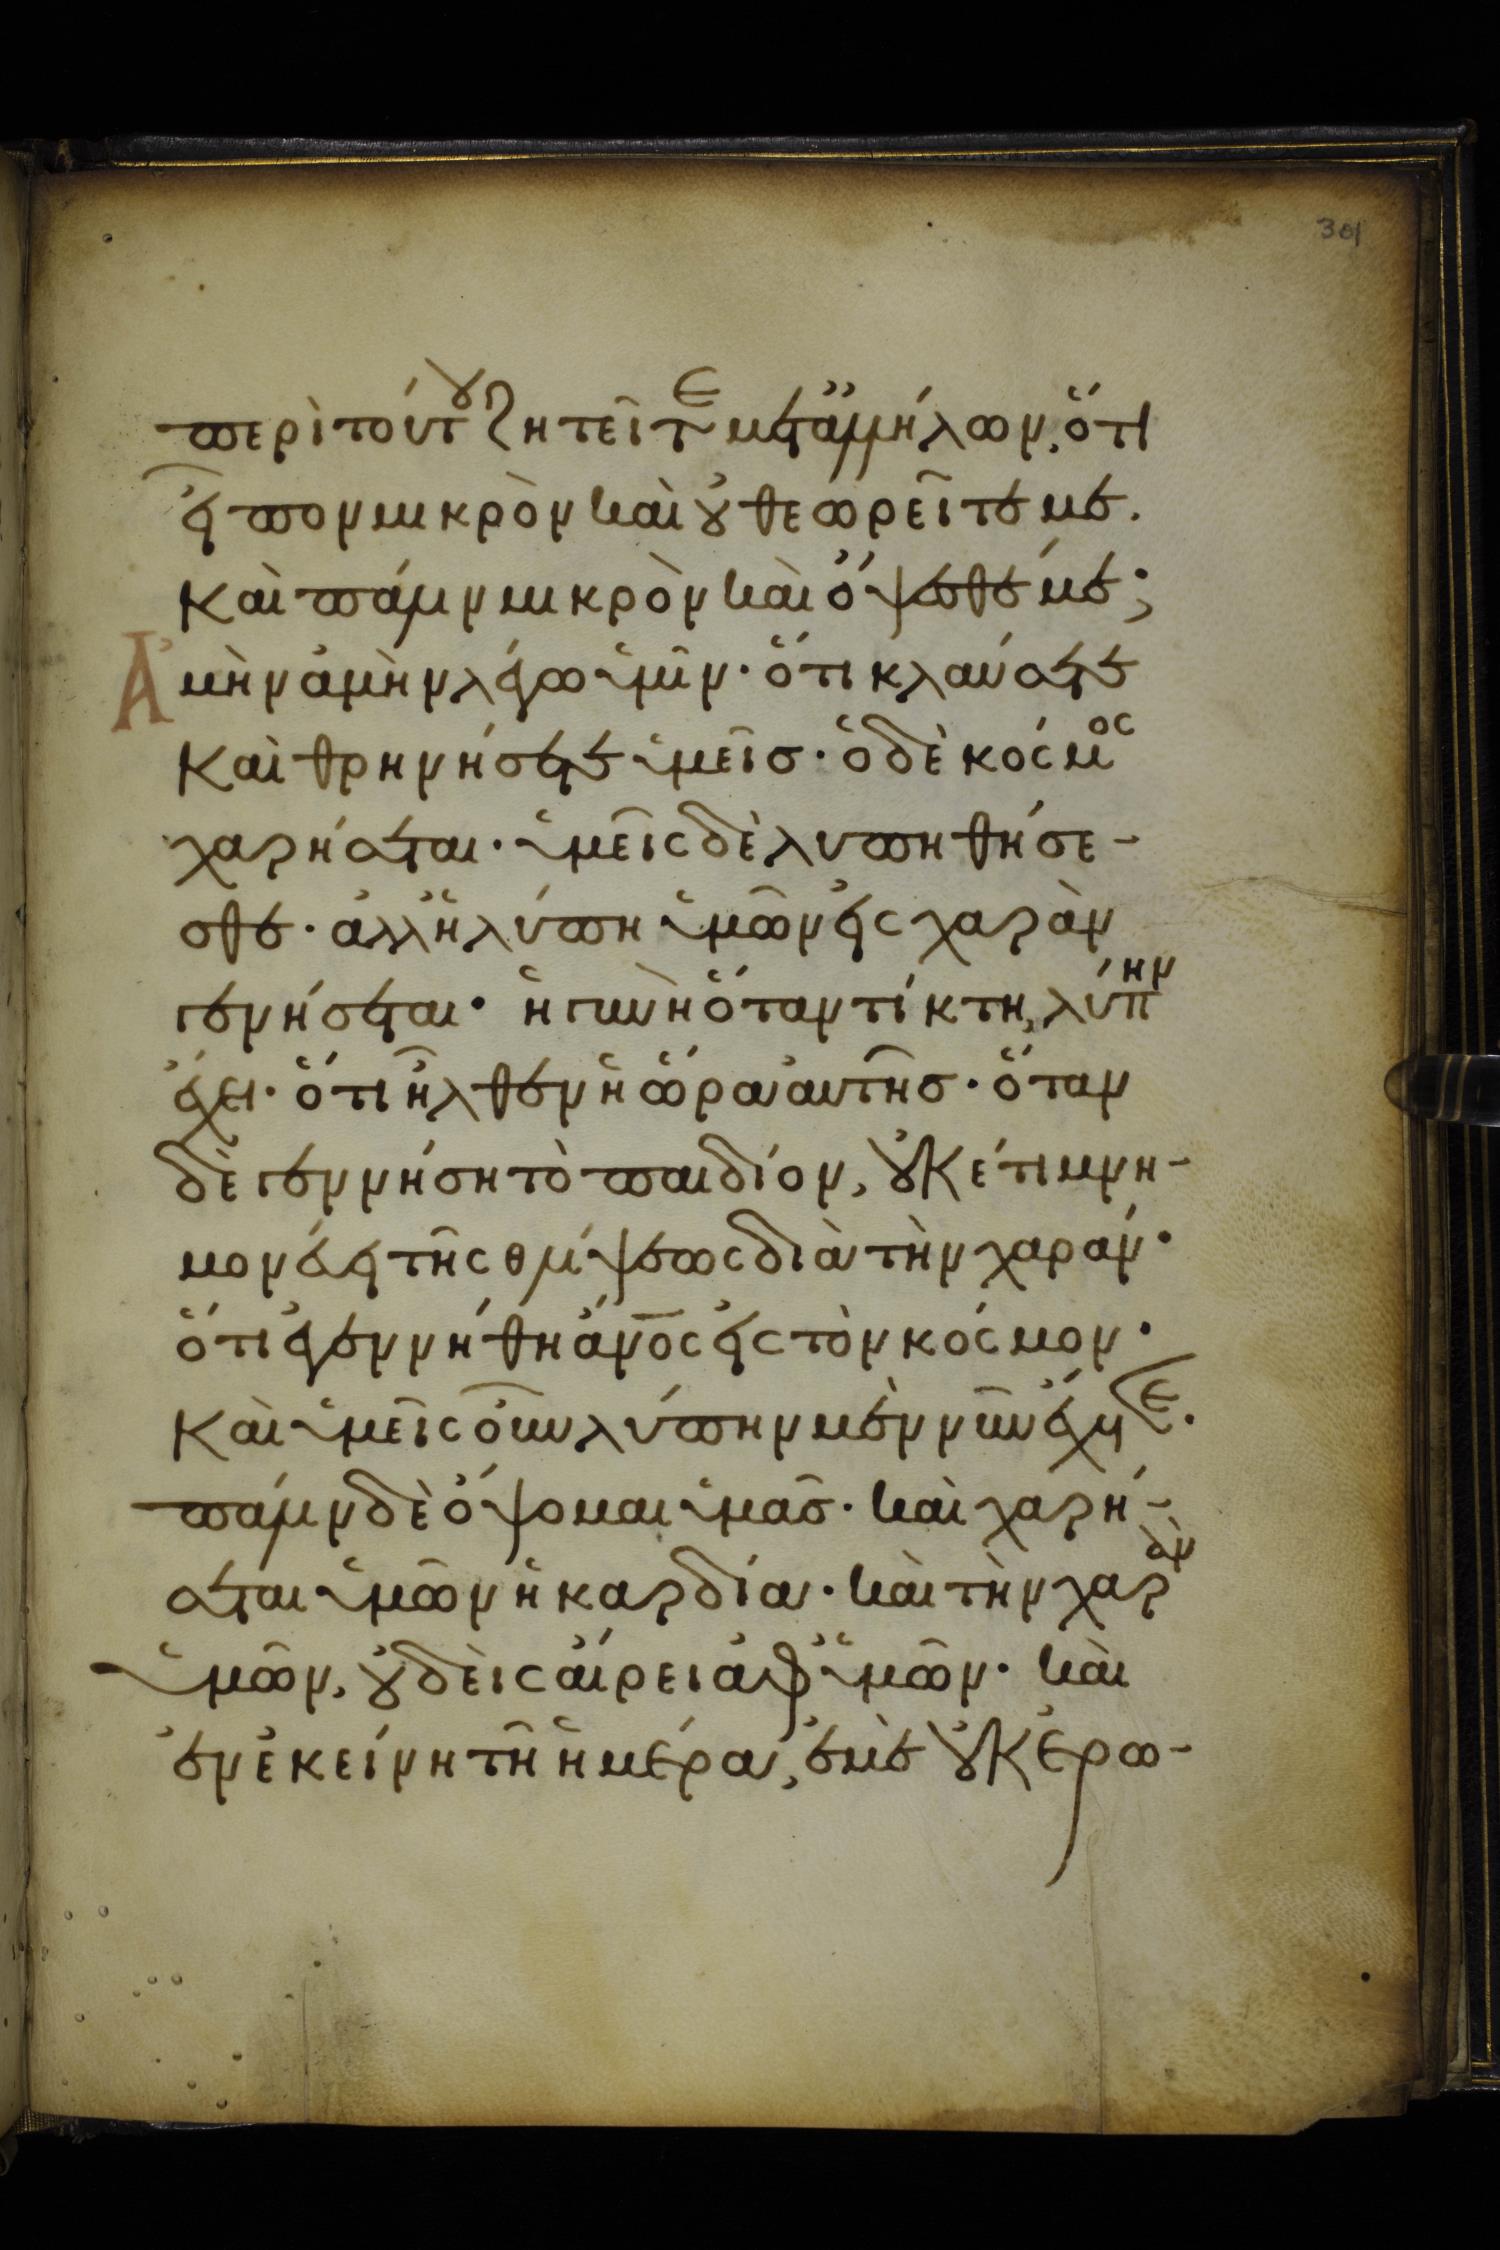 301
περὶ τούτου ζητεῖτε μετ' ἀλλήλων, ὅτι
εἶπον μικρὸν καὶ οὐ θεωρεῖτε με.
Καὶ πάλιν μικρὸν καὶ ὄψεσθέ με;
Ἀμὴν ἀμὴν λέγω ὑμῖν· ὅτι κλαύσετε
Καὶ θρηνήσετε ὑμεῖσ· ὁ δὲ κόσμος
χαρήσεται· ὑμεῖς δὲ λυπηθήσε-
σθε· ἀλλ' ἡ λύπη ὑμῶν εἰς χαρὰν
γενήσεται· ἡ γυνὴ ὅταν τίκτη, λύπην
ἔχει· ὅτι ἦλθεν ἡ ὥρα αὐτῆσ· ὅταν
δὲ γεννήση τὸ παιδίον, οὐκέτι μνη-
μονεύει τῆς θλίψεως διὰ τὴν χαράν·
ὅτι ἐγεννήθη ἄν̅ο̅ς εἰς τὸν κόσμον·
Καὶ ὑμεῖς οὖν λύπην μὲν νῦν ἔχετε.
πάλιν δὲ ὄψομαι ὑμᾶσ· καὶ χαρή-
σεται ὑμῶν ἡ καρδία· καὶ τὴν χαρὰν
ὑμῶν, οὐδεὶς αἴρει ἀφ' ὑμῶν· καὶ
ἐν ἐκείνη τῆ ἡμέρα, ἐμὲ οὐκ ἐρω-